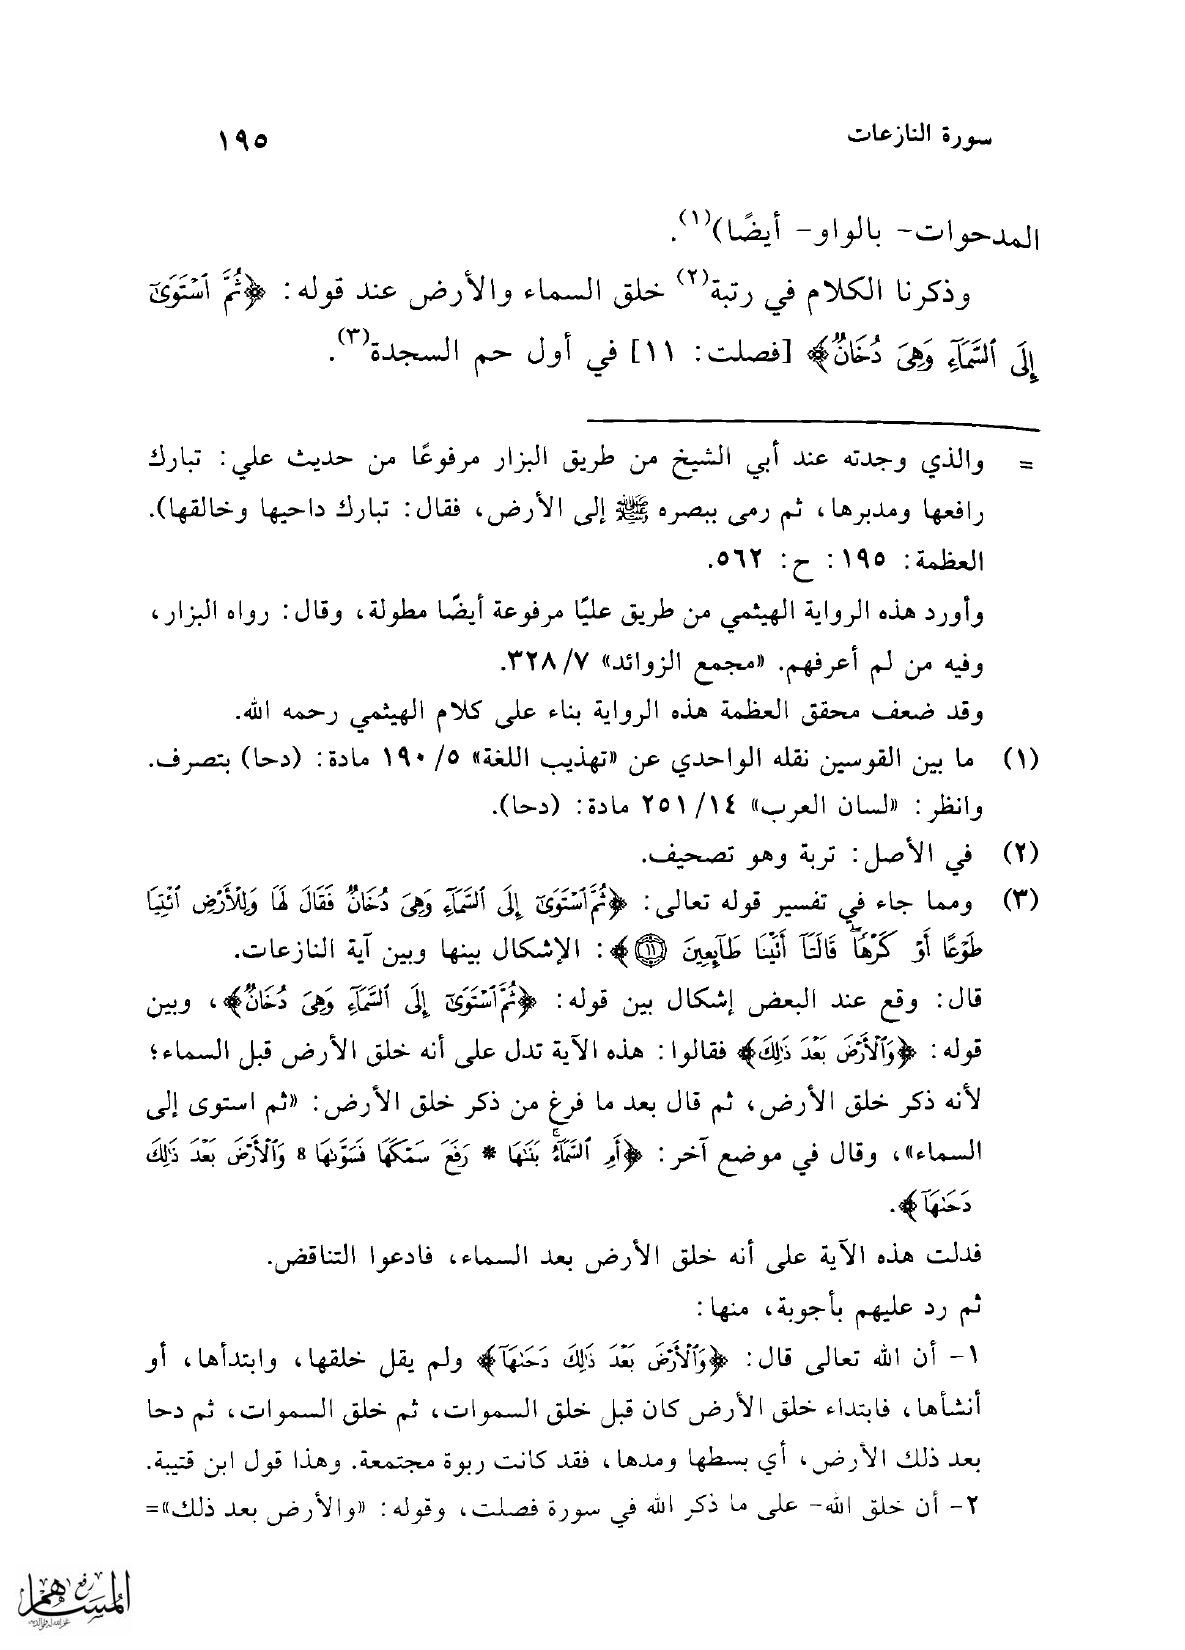 سورة النازعات ١٩٥
المدحوات- بالواو- أيضًا)(١).
وذكرنا الكلام في رتبة(٢) خلق السماء والأرض عند قوله: ﴿ثُمَّ ٱسْتَوَىٰٓ
إِلَى ٱلسَّمَآءِ وَهِىَ دُخَانٌ﴾ [فصلت: ١١] في أول حم السجدة(٣).
= والذي وجدته عند أبي الشيخ من طريق البزار مرفوعًا من حديث علي: تبارك
رافعها ومدبرها، ثم رمى ببصره ﷺ إلى الأرض، فقال: تبارك داحيها وخالقها).
العظمة: ١٩٥: ح: ٥٦٢.
وأورد هذه الرواية الهيثمي من طريق عليًا مرفوعة أيضًا مطولة، وقال: رواه البزار،
وفيه من لم أعرفهم. «مجمع الزوائد» ٣٢٨/٧.
وقد ضعف محقق العظمة هذه الرواية بناء على كلام الهيثمي رحمه الله.
(١) ما بين القوسين نقله الواحدي عن «تهذيب اللغة» ١٩٠/٥ مادة: (دحا) بتصرف.
وانظر: «لسان العرب» ٢٥١/١٤ مادة: (دحا).
(٢) في الأصل: تربة وهو تصحيف.
(٣) ومما جاء في تفسير قوله تعالى: ﴿ثُمَّ ٱسْتَوَىٰٓ إِلَى ٱلسَّمَآءِ وَهِىَ دُخَانٌ فَقَالَ لَهَا وَلِلْأَرْضِ ٱئْتِيَا
طَوْعًا أَوْ كَرْهًا قَالَتَآ أَتَيْنَا طَآئِعِينَ ١١﴾: الإشكال بينها وبين آية النازعات.
قال: وقع عند البعض إشكال بين قوله: ﴿ثُمَّ ٱسْتَوَىٰٓ إِلَى ٱلسَّمَآءِ وَهِىَ دُخَانٌ﴾، وبين
قوله: ﴿وَٱلْأَرْضَ بَعْدَ ذَٰلِكَ﴾ فقالوا: هذه الآية تدل على أنه خلق الأرض قبل السماء؛
لأنه ذكر خلق الأرض، ثم قال بعد ما فرغ من ذكر خلق الأرض: «ثم استوى إلى
السماء»، وقال في موضع آخر: ﴿أَمِ ٱلسَّمَآءُ بَنَىٰهَا * رَفَعَ سَمْكَهَا فَسَوَّىٰهَا 8 وَٱلْأَرْضَ بَعْدَ ذَٰلِكَ
دَحَىٰهَآ﴾.
فدلت هذه الآية على أنه خلق الأرض بعد السماء، فادعوا التناقض.
ثم رد عليهم بأجوبة، منها:
١- أن الله تعالى قال: ﴿وَٱلْأَرْضَ بَعْدَ ذَٰلِكَ دَحَىٰهَآ﴾ ولم يقل خلقها، وابتدأها، أو
أنشأها، فابتداء خلق الأرض كان قبل خلق السموات، ثم خلق السموات، ثم دحا
بعد ذلك الأرض، أي بسطها ومدها، فقد كانت ربوة مجتمعة. وهذا قول ابن قتيبة.
٢- أن خلق الله- على ما ذكر الله في سورة فصلت، وقوله: «والأرض بعد ذلك»=
رفع
المساهم